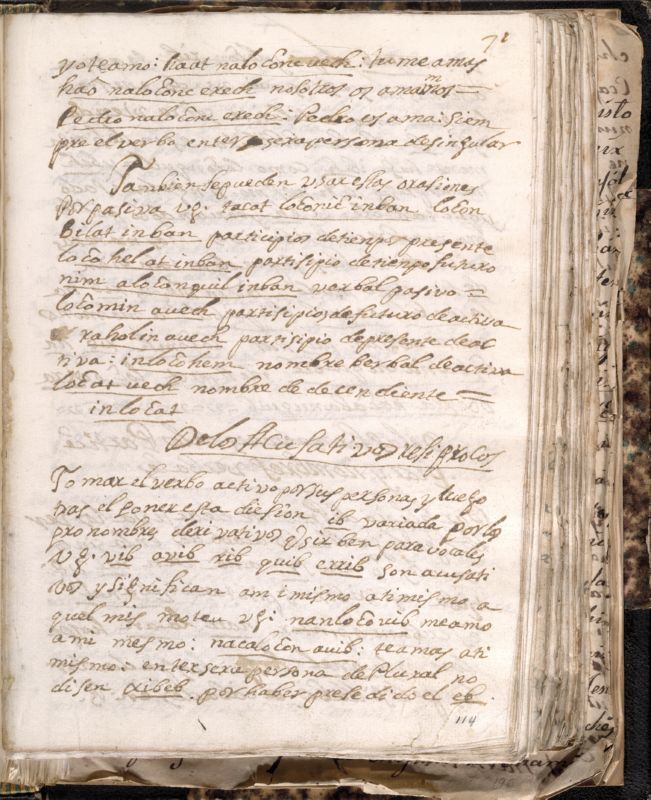 71
yo te amo: haat nalo cõnc uech: tu me amas
haõ nalo cõnc erech nosotros os amamos =
Pedro nalo cõnc erech: Pedro os ama: Siem
pre el verbo entersera persona de singular
Tambien se pueden vsar estas orasiones
Por pasiva vg: tacat locõnic inban locõn
Bilat inban participios de tienpo presente
locõ hel at inban partisipio de tienpo futuro
nim alocõn quil inban verbal pasivo =
locõmin auech partisipios de futuro de activa
raholin auech partisipio de presente de ac
tiva: inlocõhem nombre berbal de activa
locõat uech nombre de decendiente =
inlocat
De los Acusativos resiprocos
Tomar el verbo activo por sus personas y luego
tras el poner esta diction ib variada por los
pronombres derivativos q̃ sirben para vocales
Vg. vib avib rib quib errib son acusati
vos y significan ami mismo atimismo a
quel mis mo teu vg: nanlocõ vib me amo
ami mesmo: nacalocõn avib: te amas ati
mismo: entersera persona de Plural no
disen qxibeb. por haber presedido el eb.
114